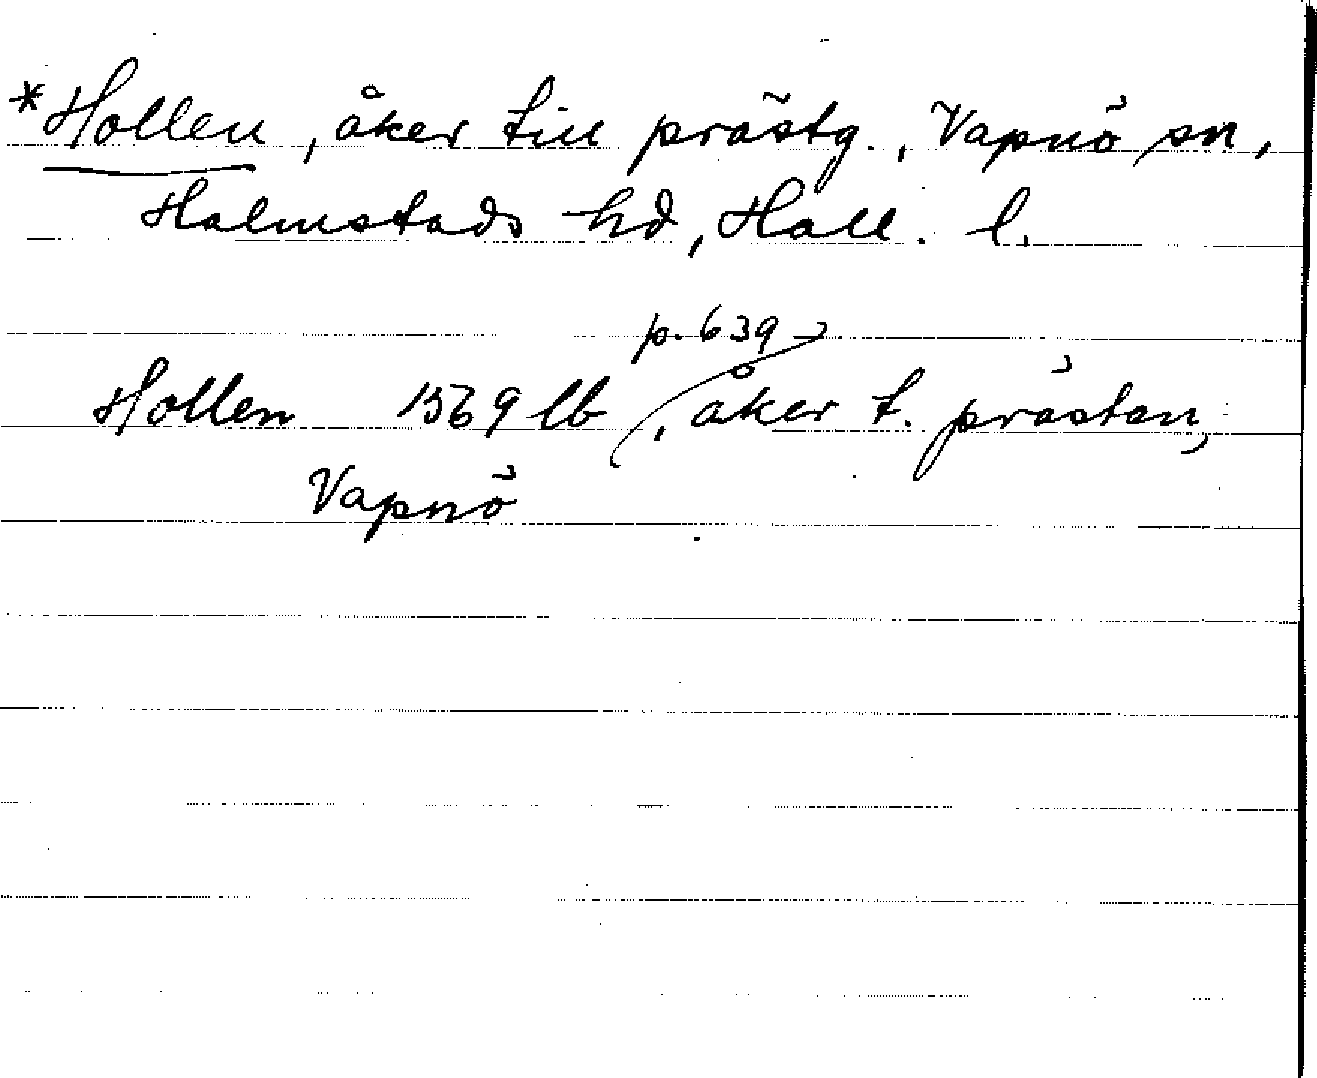 *Hollen, åker till prästg., Vapnö sn,
Halmstads hd, Hall. l.
p. 639
Hollen 1569 lb, åker t. prästan,
Vapnö